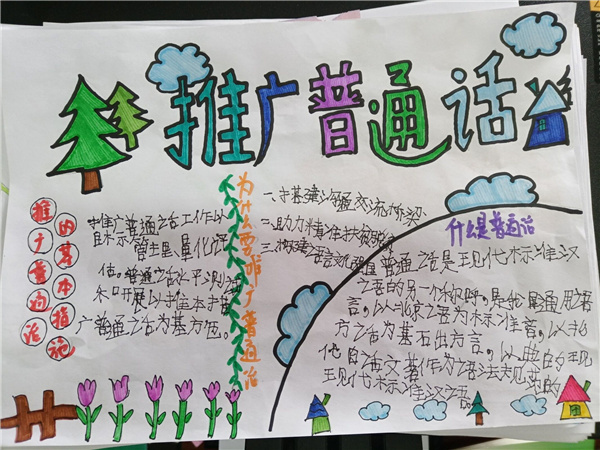 推广普通话
推广普通话
的基本措施
推广普通话工作以
目标示管理、量化评
估。普通话水平测试
和开展以推本培
广普通话为基方伍。
为什么要推广普通话
一、搭建沟通交流桥梁
二、助力精准扶贫
三、构建语言文化
什么是普通话
普通话是现代标准汉
语的另一个称呼。是我通用语
言。以北京语为标准音，以北
方话为基石出方言。以典的现
他白话文著作为语法规范的
现代标准汉语。